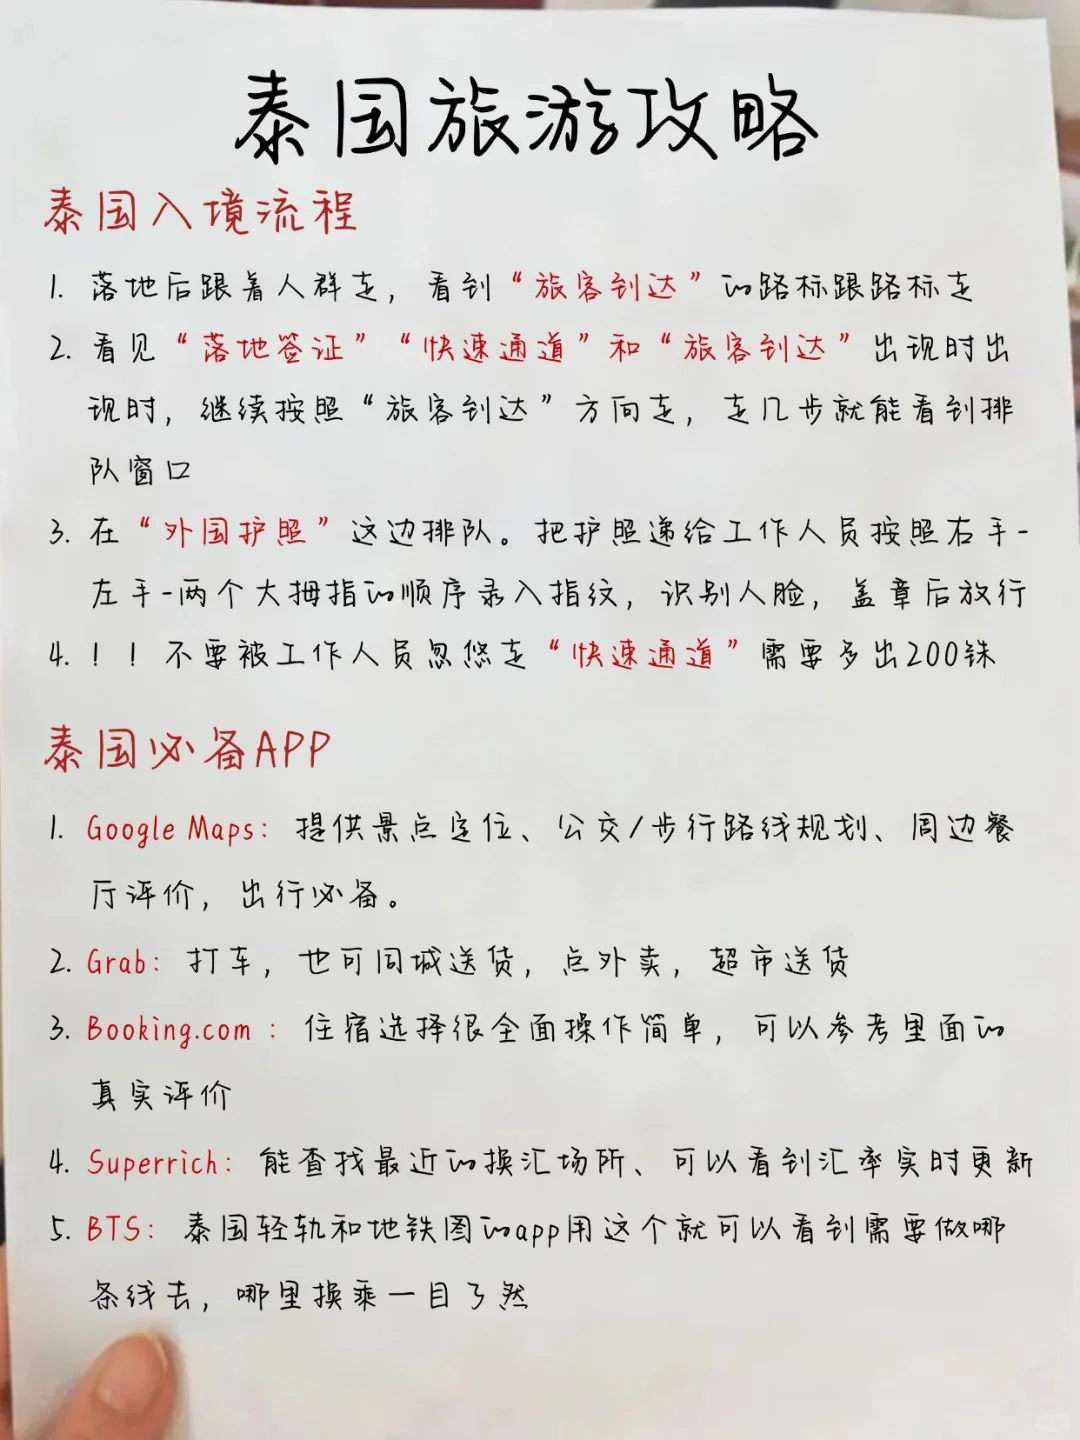 泰国旅游攻略
泰国入境流程
1. 落地后跟着人群走，看到“旅客到达”的路标跟路标走
2. 看见“落地签证”“快速通道”和“旅客到达”出现时出
现时，继续按照“旅客到达”方向走，走几步就能看到排
队窗口
3. 在“外国护照”这边排队。把护照递给工作人员按照右手-
左手-两个大拇指的顺序录入指纹，识别人脸，盖章后放行
4. ！！不要被工作人员忽悠走“快速通道”需要多出200铢
泰国必备APP
1. Google Maps：提供景点定位、公交/步行路线规划、周边餐
厅评价，出行必备。
2. Grab：打车，也可同城送货，点外卖，超市送货
3. Booking.com：住宿选择很全面操作简单，可以参考里面的
真实评价
4. Superrich：能查找最近的换汇场所、可以看到汇率实时更新
5. BTS：泰国轻轨和地铁图的app用这个就可以看到需要做哪
条线去，哪里换乘一目了然